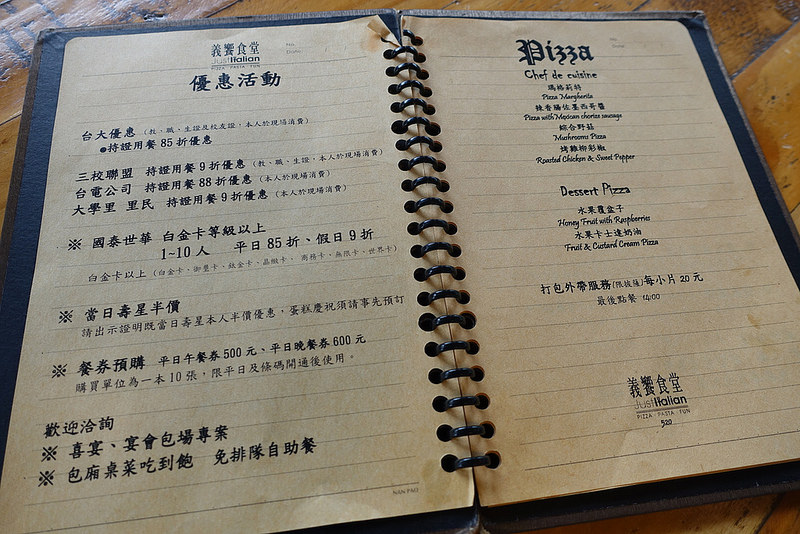 No.
Date:
義饗食堂
JustItalian
PIZZA PASTA FUN
優惠活動
台大優惠 (教、職、生證及校友證，本人於現場消費)
●持證用餐 85 折優惠
三校聯盟 持證用餐 9 折優惠 (教、職、生證，本人於現場消費)
台電公司 持證用餐 88 折優惠 (本人於現場消費)
大學里 里民 持證用餐 9 折優惠 (本人於現場消費)
※ 國泰世華 白金卡等級以上
1~10 人 平日 85 折、假日 9 折
白金卡以上 (白金卡、御璽卡、鈦金卡、晶緻卡、商務卡、無限卡、世界卡)
※ 當日壽星半價
請出示證明既當日壽星本人半價優惠，蛋糕慶祝須請事先預訂
※ 餐券預購 平日午餐券 500 元、平日晚餐券 600 元
購買單位為一本 10 張，限平日及條碼開通後使用。
歡迎洽詢
※ 喜宴、宴會包場專案
※ 包廂桌菜吃到飽 免排隊自助餐
NAN PAO
No.
Date:
Pizza
Chef de cuisine
瑪格莉特
Pizza Margherita
辣香腸佐墨西哥醬
Pizza with Mexican chorizo sausage
綜合野菇
Mushrooms Pizza
烤雞柳彩椒
Roasted Chicken & Sweet Pepper
Dessert Pizza
水果覆盆子
Honey Fruit with Raspberries
水果卡士達奶油
Fruit & Custard Cream Pizza
打包外帶服務(限披薩)每小片 20 元
最後點餐 14:00
義饗食堂
JustItalian
PIZZA PASTA FUN
520